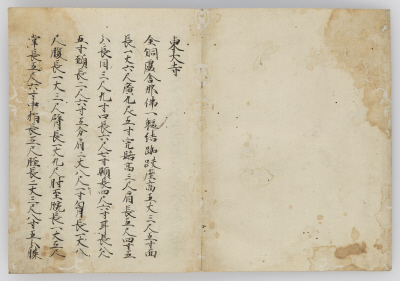 東大寺
金銅盧舎那佛一軀結跏趺坐高五丈三尺五寸面
長一丈六尺廣九尺五寸完髻高三尺眉長五尺四寸五
分目長三尺九寸口長三尺七寸頤長一尺六寸耳長八尺
五寸頸長二尺六寸五分肩長二丈八尺七寸胸長一丈八
尺腹長一丈三尺臂長一丈九尺肘至腕長一丈五尺
掌長五尺六寸中指長五尺脛長二丈三尺八寸五分膝